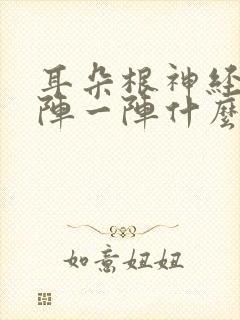 耳朵根神经
陣一陣什麼
如意妞妞